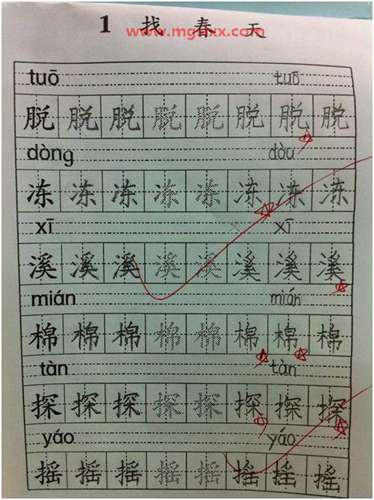 www.mgexx.com
1 找春天
tuō tuō
脱 脱 脱 脱 脱 脱 脱 脱
dòng dòu
冻 冻 冻 冻 冻 冻 冻 冻
xī xī
溪 溪 溪 溪 溪 溪 溪 溪
mián mián
棉 棉 棉 棉 棉 棉 棉 棉
tàn tàn
探 探 探 探 探 探 探 探
yáo yáo
摇 摇 摇 摇 摇 摇 摇 摇